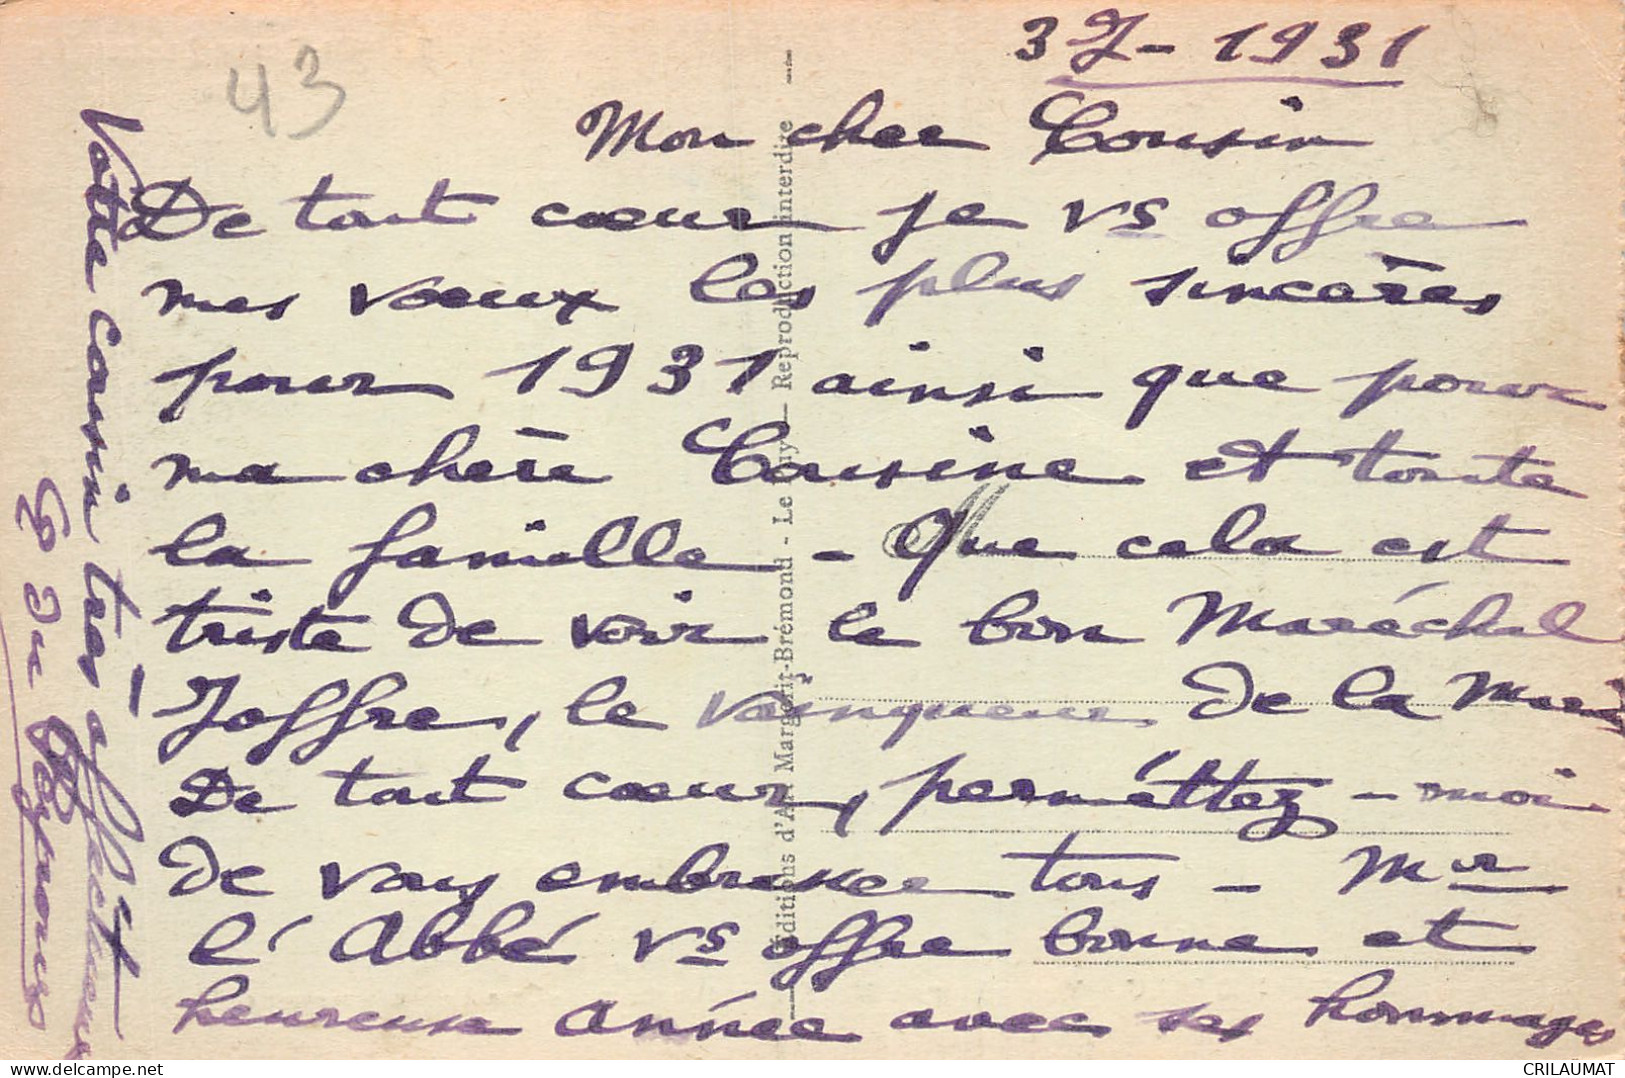 43
3 J - 1931
Mon cher Cousin
De tout cœur je vs offre
mes vœux les plus sincères
pour 1931 ainsi que pour
ma chère Cousine et toute
la famille - Que cela est
triste de voir le bon Maréchal
Joffre, le vainqueur de la
De tout cœur, perméttez-moi
de vous embrasser tous - Mr
l'Abbé vs offre bonne et
heureuse année avec ses hommages
Votre cousin très affectueux et
G du
Éditions d'Art Margerit-Brémond - Le Puy - Reproduction interdite
CRILAUMAT